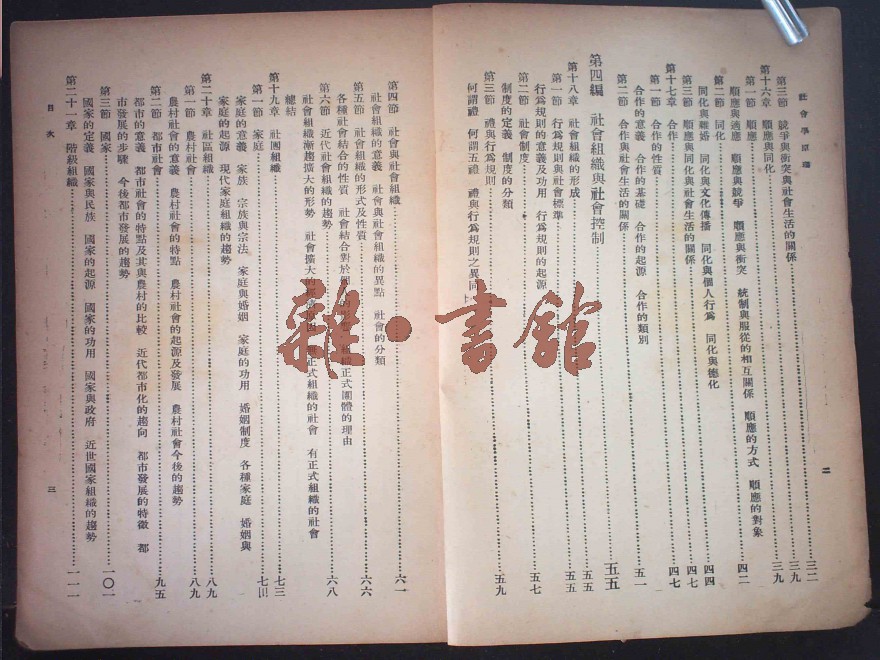 社會學原理
第三節 競爭與衝突與社會生活的關係 三二
第十六章 順應與同化 三九
第一節 順應 三九
順應與適應 順應與競爭 順應與衝突 統制與服從的相互關係 順應的方式 順應的對象
第二節 同化 四二
同化與雜婚 同化與文化傳播 同化與個人行爲 同化與德化
第三節 順應與同化與社會生活的關係 四四
第十七章 合作 四七
第一節 合作的性質 四七
合作的意義 合作的基礎 合作的起源 合作的類別
第二節 合作與社會生活的關係 五一
第四編 社會組織與社會控制 五五
第十八章 社會組織的形成 五五
第一節 行爲規則與社會標準 五五
行爲規則的意義及功用 行爲規則的起源
第二節 社會制度 五七
制度的定義 制度的分類
第三節 禮與行爲規則 五九
何謂禮 何謂五禮 禮與行爲規則之異同
二
第四節 社會與社會組織 六一
社會組織的意義 社會與社會組織的異點 社會的分類
第五節 社會組織的形式及性質 六六
各種社會結合的性質 社會結合對於個 正式團體的理由
第六節 近代社會組織的趨勢 六八
社會組織漸趨擴大的形勢 社會擴大的 正式組織的社會 有正式組織的社會
總結
第十九章 社團組織 七三
第一節 家庭 七四
家庭的意義 家族 宗族與宗法 家庭與婚姻 家庭的功用 婚姻制度 各種家庭 婚姻與
家庭的起源 現代家庭組織的趨勢
第二十章 社區組織 八九
第一節 農村社會 八九
農村社會的意義 農村社會的特點 農村社會的起源及發展 農村社會今後的趨勢
第二節 都市社會 九五
都市的意義 都市社會的特點及其與農村的比較 近代都市化的趨向 都市發展的特徵 都
市發展的步驟 今後都市發展的趨勢
第三節 國家 一〇一
國家的定義 國家與民族 國家的起源 國家的功用 國家與政府 近世國家組織的趨勢
第二十一章 階級組織 一一一
目次
三
雜·書館